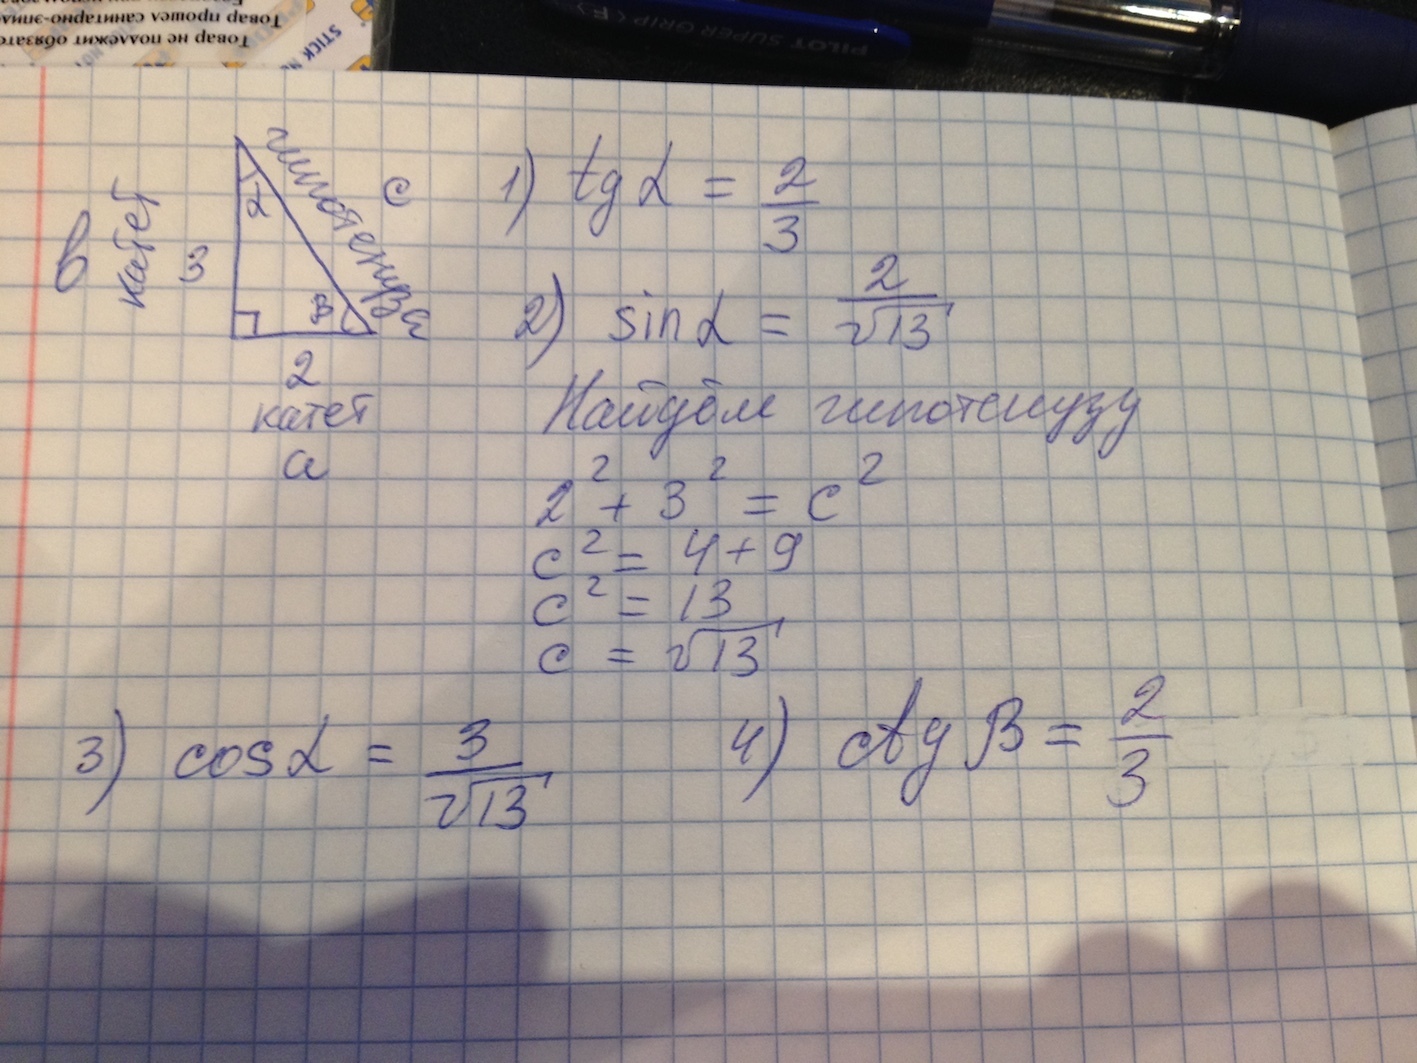 Товар не подлежит обязате
Товар прошел санитарно-эпид
STICK N
PILOT SUPER GRIP (F)
в катет 3
α
гипотенуза
c
β
2
катет
a
1) tg α = 2/3
2) sin α = 2/√13
Найдём гипотенузу
2² + 3² = c²
c² = 4 + 9
c² = 13
c = √13
3) cos α = 3/√13
4) ctg β = 2/3